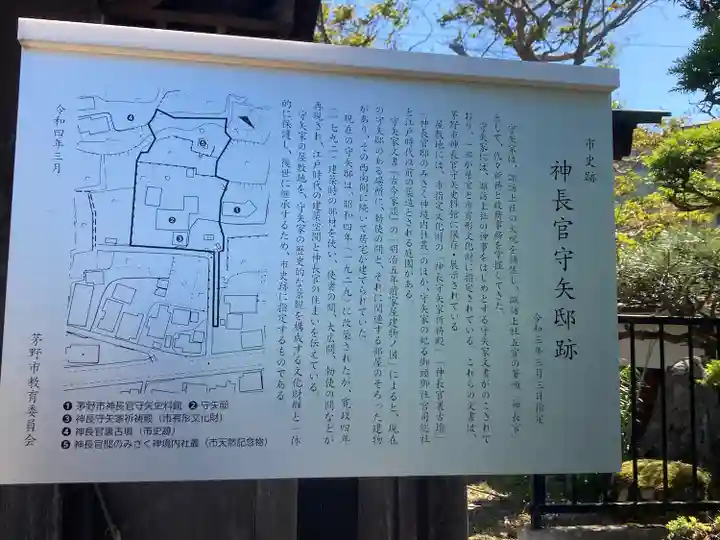 市史跡
神長官守矢邸跡
令和三年三月三日指定
守矢家は、諏訪上社の大祝を補佐し、諏訪上社五官の筆頭「神長官」
として、代々祈祷と政務事務を掌握してきた。
守矢家には、諏訪上社の神事をはじめとする守矢家文書がのこされて
おり、一部が県宝と市有形文化財に指定されている。これらの文書は、
茅野市神長官守矢史料館に保存・展示されている。
屋敷地には、市指定文化財の「神長守矢家祈祷殿」「神長官裏古墳」
「神長官邸のみさく神境内社叢」のほか、守矢家の祀る御頭御社宮司総社
と江戸時代以前の築造とされる庭園がある。
守矢家文書「古今家談」の「明治五年前家屋建物ノ図」によると、現在
の守矢邸のある場所に、勅使の間と、それに関連する部屋のそろった建物
があり、その西南側に続いて居宅が建てられていた。
現在の守矢邸は、昭和四年（一九二九）に改築されたが、寛政四年
（一七九二）建築時の部材を使い、使者の間、大広間、勅使の間などが
再現され、江戸時代の建築空間と神長官の住まいを伝えている。
守矢家の屋敷地を、守矢家の歴史的な景観を構成する文化財群と一体
的に保護し、後世に継承するため、市史跡に指定するものである。
令和四年三月
茅野市教育委員会
④
⑤
①
②
③
❶ 茅野市神長官守矢史料館 ❷ 守矢邸
❸ 神長守矢家祈祷殿（市有形文化財）
❹ 神長官裏古墳（市史跡）
❺ 神長官邸のみさく神境内社叢（市天然記念物）